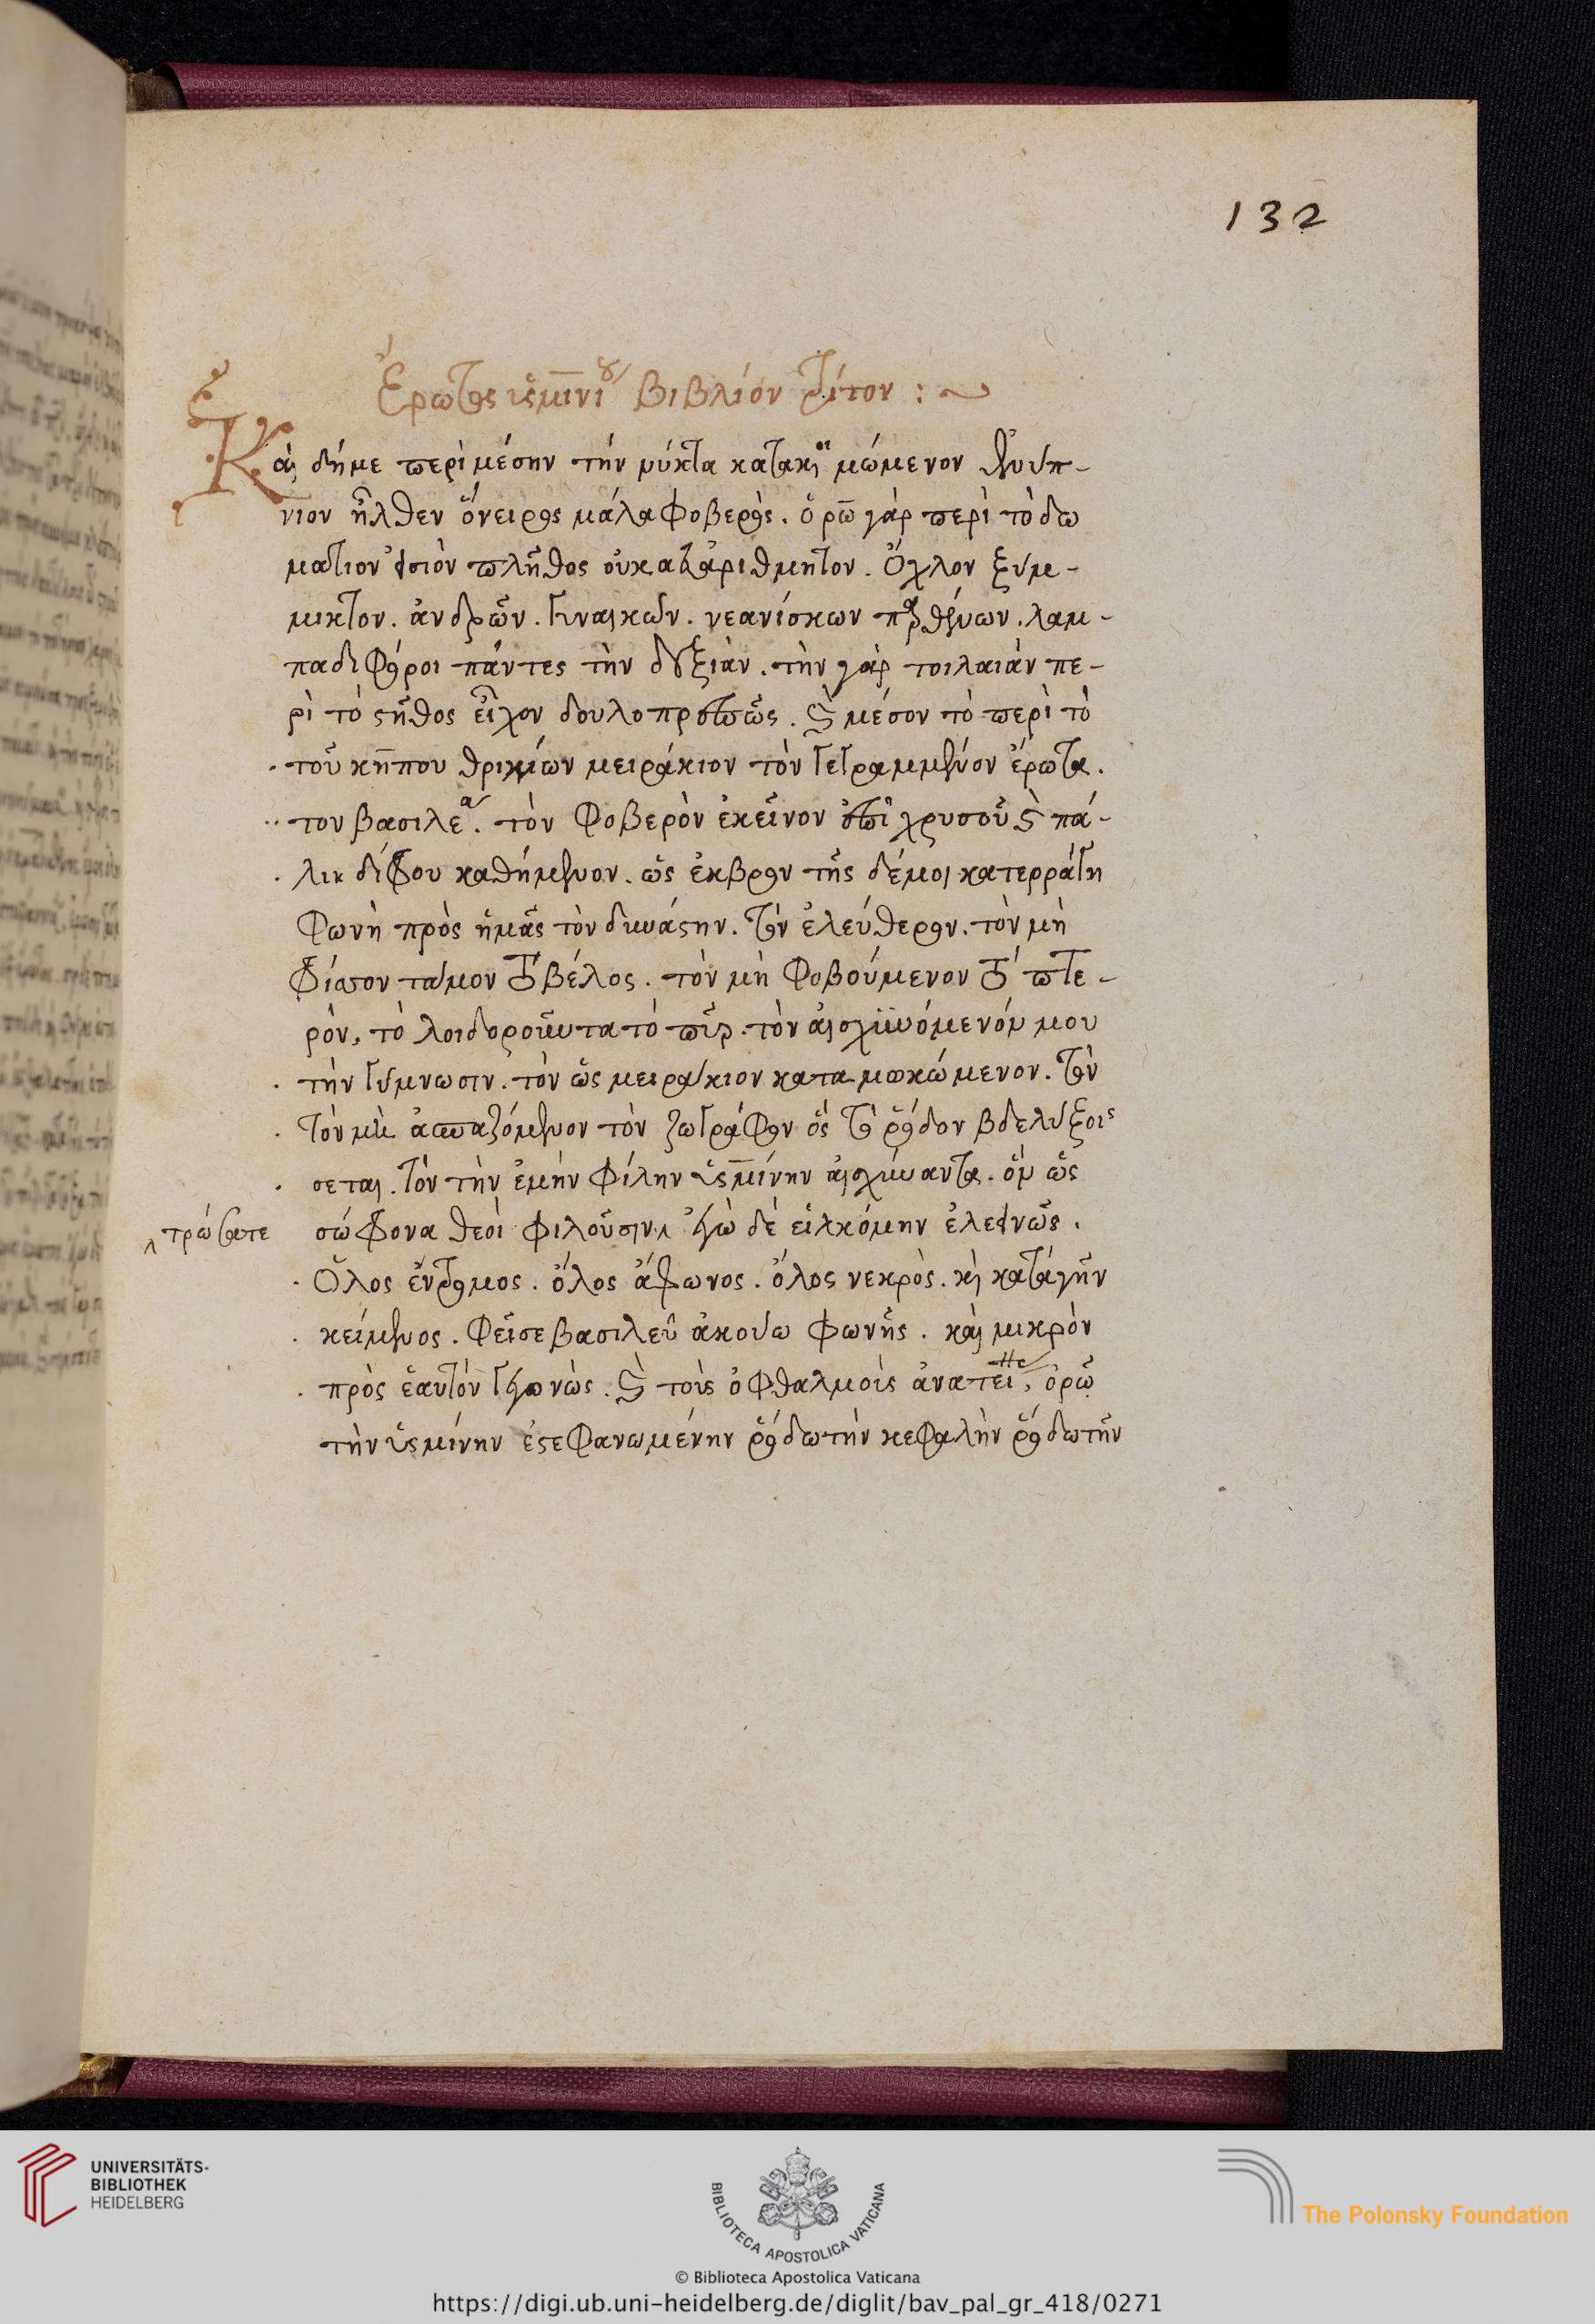 132
Ἔρωτος ὑσμινίου βιβλίον τρίτον : ~
Καὶ δή με περὶ μέσην τὴν νύκτα κατακοιμώμενον ἐνύπ-
νιον ἦλθεν ὄνειρος μάλα φοβερὸς. ὁρῶ γὰρ περὶ τὸ δω
μάτιον εἰσιὸν πλῆθος οὐκ αταρίθμητον. Ὄχλον ξύμ-
μικτον. ἀνδρῶν. γυναικῶν. νεανίσκων παρθένων. λαμ-
παδιφόροι πάντες τὴν δεξιὰν. τὴν γὰρ τοιλαιὰν πε-
ρὶ τὸ στῆθος εἶχον δουλοπρεπῶς. καὶ μέσον τὸ περὶ τὸ
τοῦ κήπου θριγκίων μειράκιον τὸν γεγραμμένον ἔρωτα.
τον βασιλέα. τὸν φοβερὸν ἐκεῖνον ἐπὶ χρυσοῦ καὶ πά-
λιν δίφρου καθήμενον. ὡς ἐκβρον τῆς δέμοι κατερράγη
φωνὴ πρὸς ἡμᾶς τὸν δυνάστην. τὸν ἐλεύθερον. τὸν μὴ
τὸ βέλος. τὸν μὴ φοβούμενον τὸ πτε-
ρόν, τὸ λοιδοροῦντα τὸ πῦρ. τὸν αἰσχυνόμενόν μου
τὴν γύμνωσιν. τὸν ὡς μειράκιον καταμωκώμενον. τὸν
τὸν μὴ ἀσπαζόμενον τὸν ζωγράφον ὅς τὸ ῥόδον βδελύξοις
σεται. τὸν τὴν ἐμὴν φίλην ὑσμίνην αἰσχύναντα. ὃν ὡς
τρώσατε σώφρονα θεοὶ φιλοῦσιν. ἐγὼ δὲ εἱλκόμην ἐλεεινῶς.
Ὅλος ἔντρομος. ὅλος ἄφωνος. ὅλος νεκρὸς. καὶ κατὰ γῆν
κείμενος. Φεῖσε βασιλεῦ ἀκούω φωνῆς. καὶ μικρὸν
πρὸς ἑαυτὸν γεγονὼς. καὶ τοὺς ὀφθαλμοὺς ἀνατεί, ὁρῶ
τὴν ὑσμίνην ἐστεφανωμένην ῥόδω τὴν κεφαλὴν ῥόδω τὴν
UNIVERSITÄTS-
BIBLIOTHEK
HEIDELBERG
BIBLIOTECA APOSTOLICA VATICANA
The Polonsky Foundation
© Biblioteca Apostolica Vaticana
https://digi.ub.uni-heidelberg.de/diglit/bav_pal_gr_418/0271